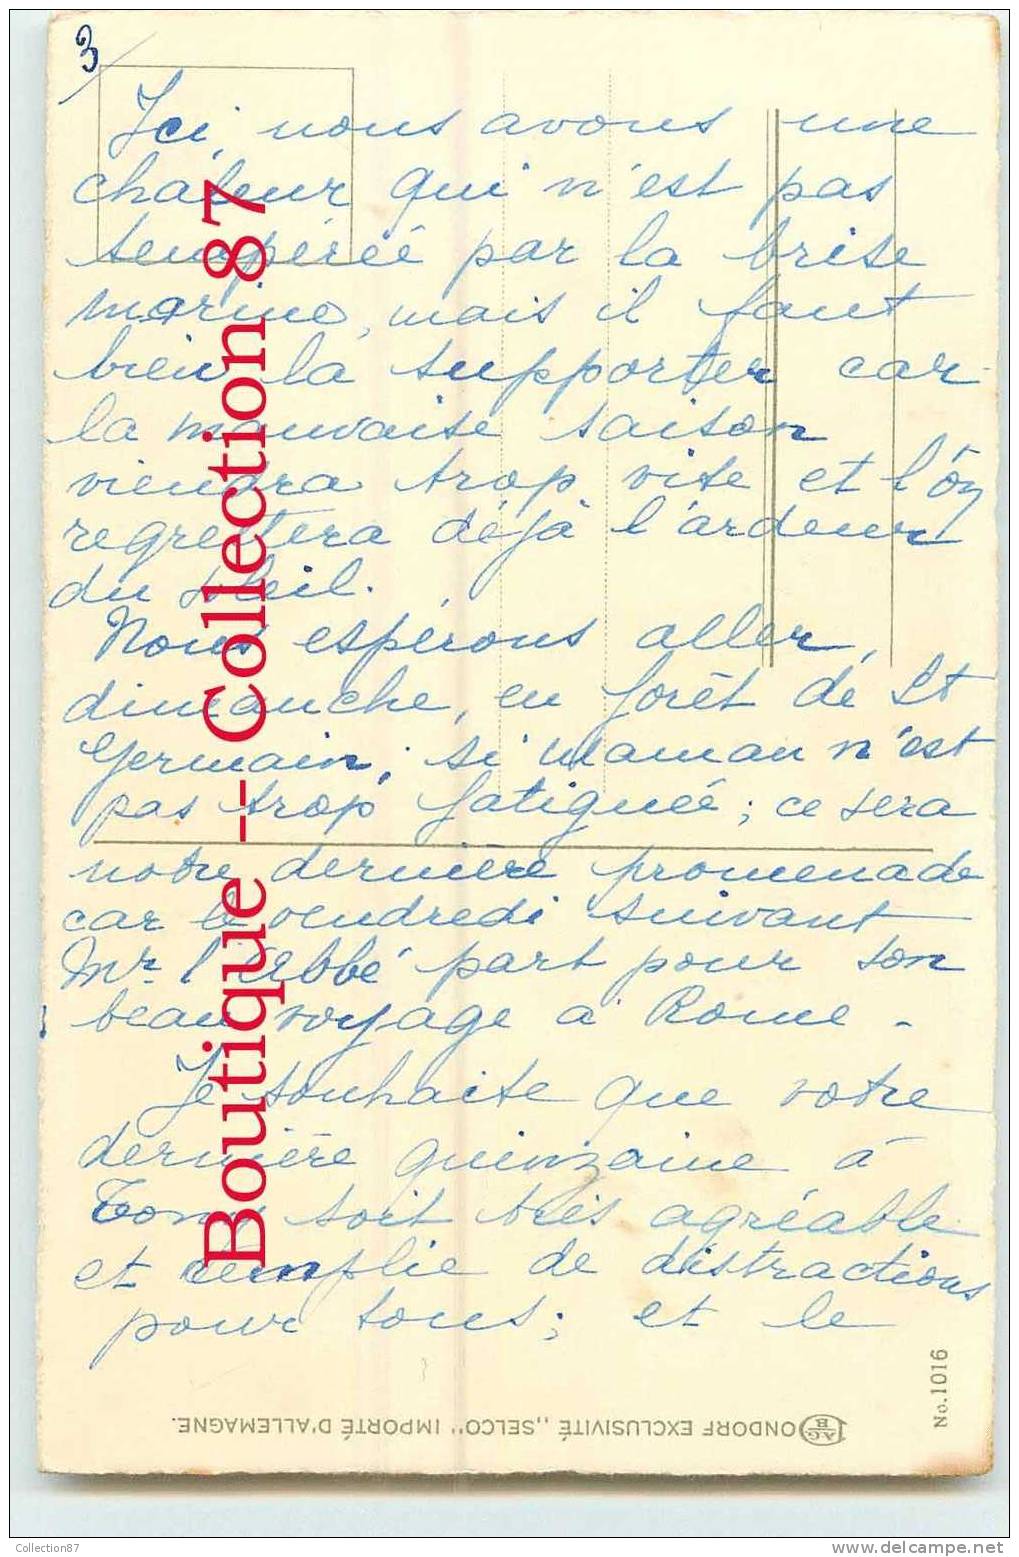 3
Ici, nous avons une
chaleur qui n'est pas
tempérée par la brise
marine, mais il faut
bien la supporter car
la mauvaise saison
viendra trop vite et l'on
regrettera déjà l'ardeur
du soleil.
Nous espérons aller,
dimanche, en forêt de St
Germain, si maman n'est
pas trop fatiguée ; ce sera
notre dernière promenade
car le vendredi suivant
Mr l'Abbé part pour son
beau voyage à Rome -
Je souhaite que votre
dernière quinzaine à
soit très agréable
et remplie de distractions
pour tous ; et le
ONDORF EXCLUSIVITÉ „SELCO" IMPORTÉ D'ALLEMAGNE.
No. 1016
Boutique -- Collection 87
Collection87
www.delcampe.net